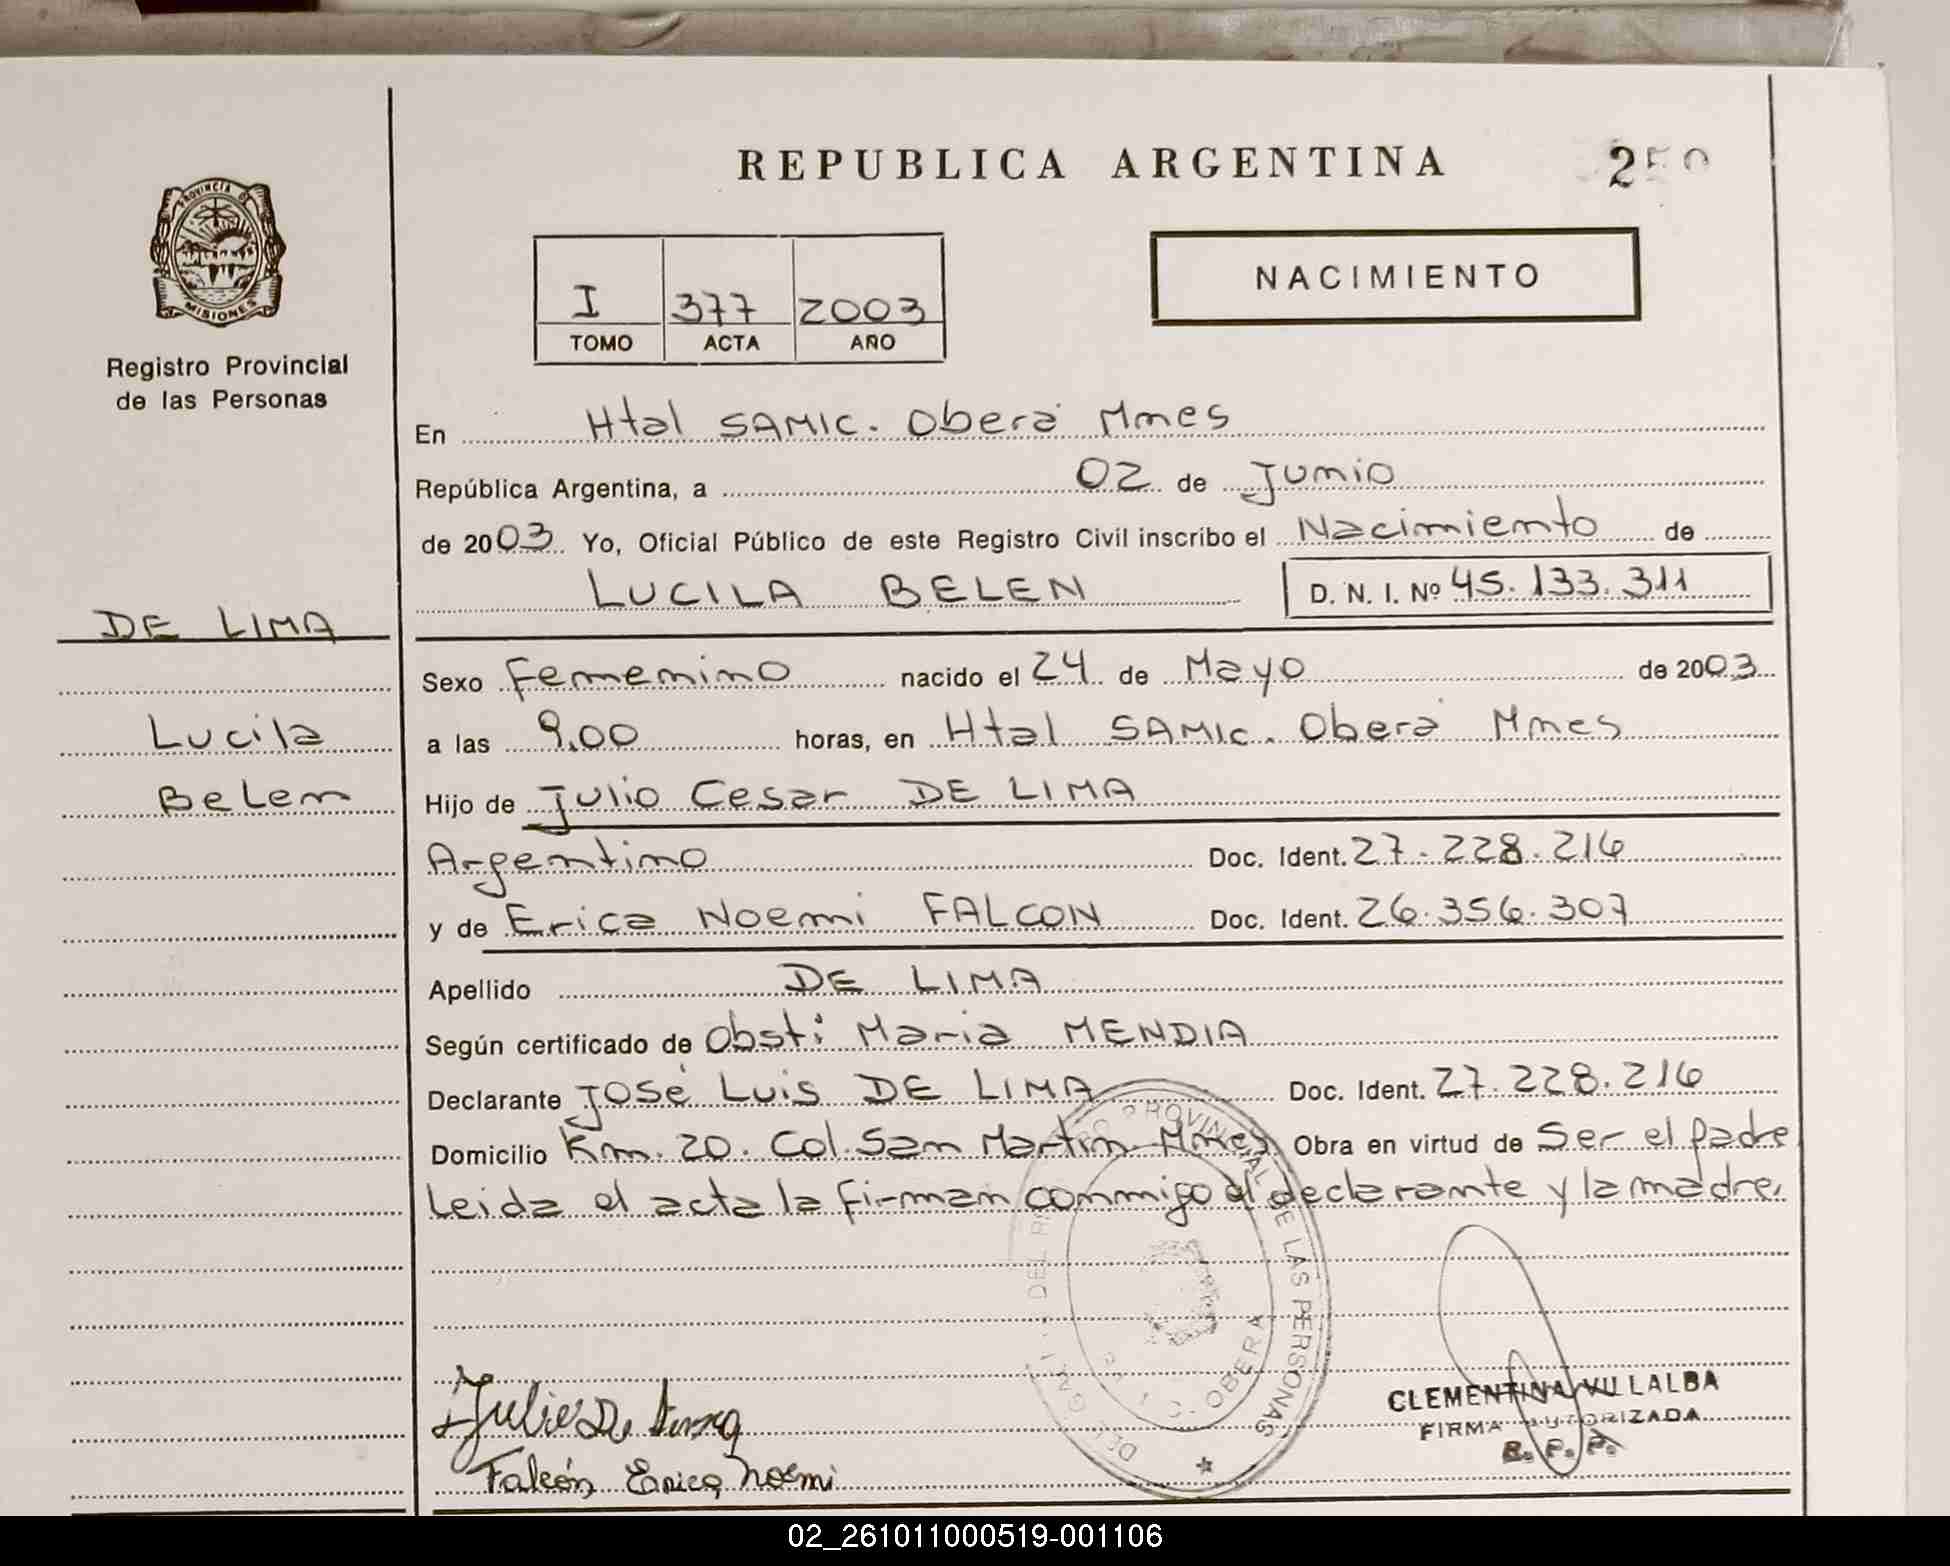 REPUBLICA ARGENTINA
250
PROVINCIA DE
MISIONES
Registro Provincial
de las Personas
I 377 2003
TOMO ACTA AÑO
NACIMIENTO
En Htal SAMIC. Oberá Mnes
República Argentina, a 02 de Junio
de 2003 Yo, Oficial Público de este Registro Civil inscribo el Nacimiento de
LUCILA BELEN D. N. I. Nº 45.133.311
DE LIMA
Lucila
Belen
Sexo Femenino nacido el 24 de Mayo de 2003
a las 9.00 horas, en Htal SAMIC. Oberá Mnes
Hijo de Julio Cesar DE LIMA
Argentino Doc. Ident. 27.228.216
y de Erica Noemi FALCON Doc. Ident. 26.356.307
Apellido DE LIMA
Según certificado de Obst: Maria MENDIA
Declarante José Luis DE LIMA Doc. Ident. 27.228.216
Domicilio Km. 20. Col. San Martin Mnes Obra en virtud de Ser el padre
Leida el acta la firman conmigo el declarante y la madre.
PROVINCIAL DE LAS PERSONAS
OBERA
Julio De Lima
Falcón Erica Noemi
CLEMENTINA VILLALBA
FIRMA AUTORIZADA
R. P. P.
02_261011000519-001106